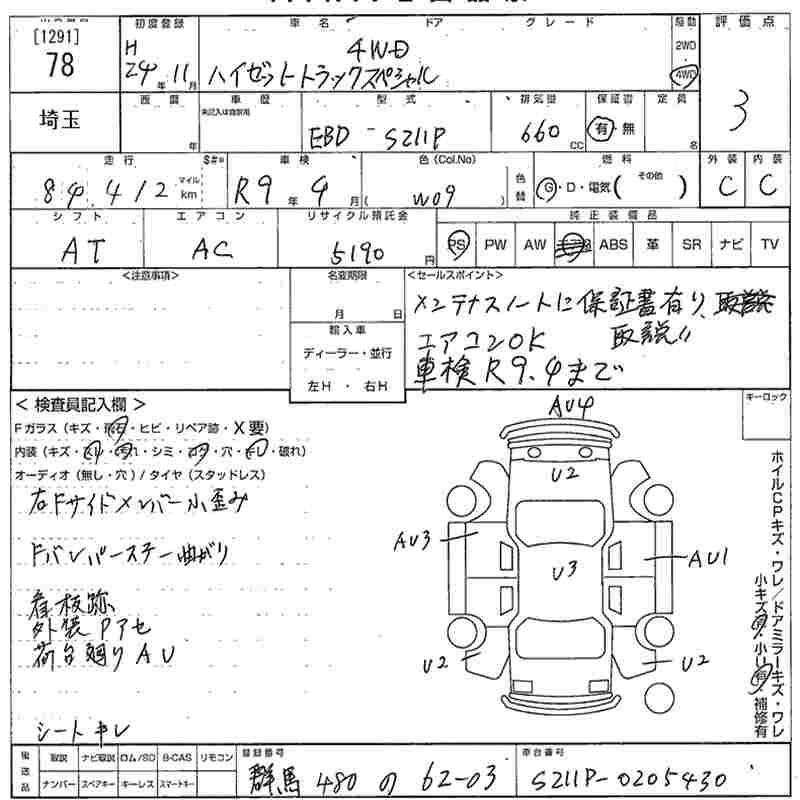 [1291]
78
埼玉
初度登録
H 24年 11月
車名 ドア グレード
4WD
ハイゼットトラックスペシャル
駆動
2WD
4WD
評価点
3
年
車歴
未記入は自家用
型式
EBD - S211P
排気量
660 CC
保証書
有・無
定員
名
走行
84,412 マイル km
車検
R9年 4月
色(Col.No)
( W09 )
色替
燃料
G・D・電気( その他 )
外装
C
内装
C
シフト
AT
エアコン
AC
リサイクル預託金
5190 円
純正装備品
PS PW AW ABS 革 SR ナビ TV
<注意事項>
名変期限
月 日
輸入車
ディーラー・並行
左H・右H
<セールスポイント>
メンテナスノートに保証書有り、
エアコンOK 取説!!
車検R9.4まで
<検査員記入欄>
Fガラス(キズ・飛石・ヒビ・リペア跡・X要)
内装(キズ・・・シミ・・穴・・破れ)
オーディオ(無し・穴)/タイヤ(スタッドレス)
右Fサイドメンバー小歪み
Fバンパーステー曲がり
看板跡
外装Pアセ
荷台廻りAU
シートキレ
キーロック
AU4
U2
AU3
U3
AU1
U2
U2
ホイルCPキズ・ワレ/ドアミラーキズ・ワレ
小キズ有・小U有・補修有
後送品
取説 ナビ取説 ロム/SD B-CAS リモコン
ナンバー スペアキー キーレス スマートキー
登録番号
群馬 480 の 62-03
車台番号
S211P-0205430